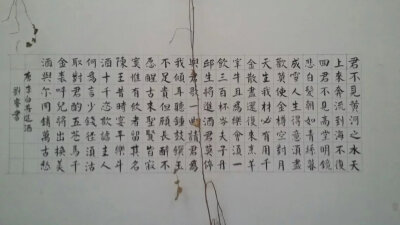 君不見黃河之水天
上來奔流到海不復
回君不見高堂明鏡
悲白髮朝如青絲暮
成雪人生得意須盡
歡莫使金樽空對月
天生我材必有用千
金散盡還復來烹羊
宰牛且為樂會須一
飲三百杯岑夫子丹
邱生將進酒君莫停
與君歌一曲請君為
我傾耳聽鐘鼓饌玉
不足貴但願長醉不
愿醒古來聖賢皆寂
寞惟有飲者留其名
陳王昔時宴平樂斗
酒十千恣歡謔主人
何為言少錢徑須沽
取對君酌五花馬千
金裘呼兒將出換美
酒與尔同銷萬古愁
唐李白將進酒
劉書